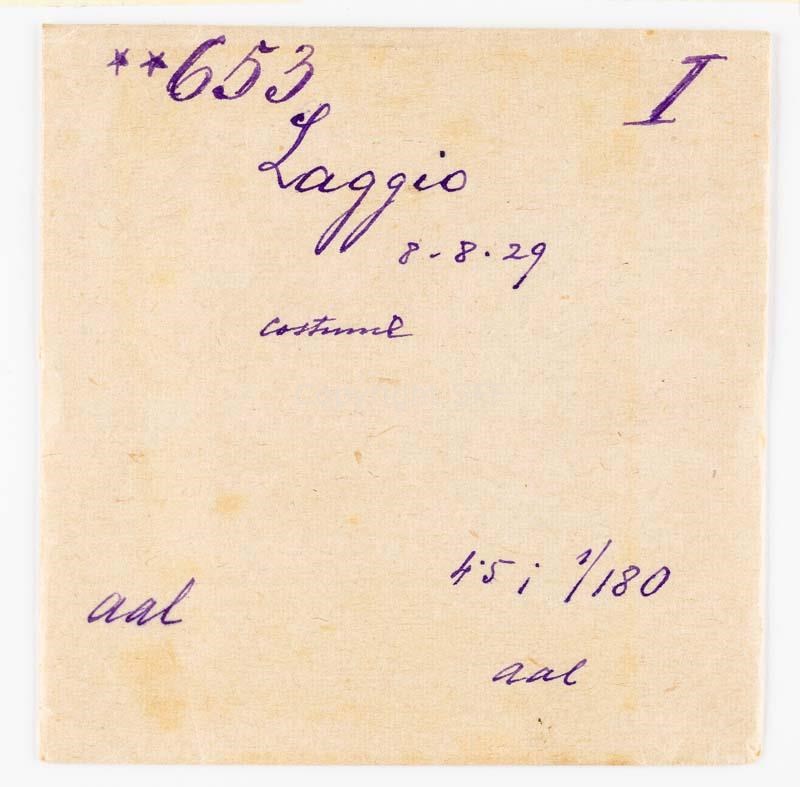 **653 I
Laggio
8-8-29
costume
45 i 1/180
aal
aal